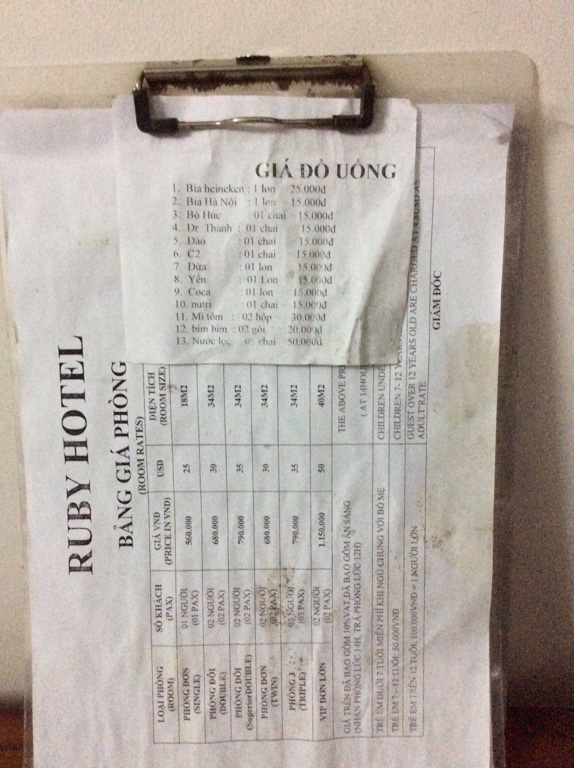 GIÁ ĐỒ UỐNG
1. Bia heineken : 1 lon 25.000đ
2. Bia Hà Nội : 1 lon 15.000đ
3. Bò Húc : 01 chai 15.000đ
4. Dr Thanh : 01 chai 15.000đ
5. Dảo : 01 chai 15.000đ
6. C2 : 01 chai 15.000đ
7. Dừa : 01 lon 15.000đ
8. Yến : 01 Lon 15.000đ
9. Coca : 01 lon 15.000đ
10. nutri : 01 chai 15.000đ
11. Mì tôm : 02 hộp 30.000đ
12. bim bim : 02 gói 20.000đ
13. Nước lọc : chai 50.000đ
RUBY HOTEL
BẢNG GIÁ PHÒNG
(ROOM RATES)
LOẠI PHÒNG (ROOM) SỐ KHÁCH (PAX) GIÁ VND (PRICE IN VND) USD DIỆN TÍCH (ROOM SIZE)
PHÒNG ĐƠN (SINGLE) 01 NGƯỜI (01 PAX) 560.000 25 18M2
PHÒNG ĐÔI (DOUBLE) 02 NGƯỜI (02 PAX) 680.000 30 34M2
PHÒNG ĐÔI (SugeriorDOUBLE) 02 NGƯỜI (02 PAX) 790.000 35 34M2
PHÒNG ĐƠN (TWIN) 02 NGƯỜI (02 PAX) 680.000 30 34M2
PHÒNG 3 (TRIPLE) 03 NGƯỜI (03 PAX) 790.000 35 34M2
VIP ĐƠN LỚN 02 NGƯỜI (02 PAX) 1.150.000 50 40M2
GIÁ TRÊN ĐÃ BAO GỒM 10%VAT, ĐÃ BAO GỒM ĂN SÁNG THE ABOVE
(NHẬN PHÒNG LÚC 14H, TRẢ PHÒNG LÚC 12H) ( AT 14HOU
TRẺ EM DƯỚI 7 TUỔI MIỄN PHÍ KHI NGỦ CHUNG VỚI BỐ MẸ CHILDREN UNDE
TRẺ EM 7- 12 TUỔI: 50.000VNĐ CHILDREN 7- 12 YEARS
TRẺ EM TRÊN 12 TUỔI: 100.000VNĐ = 1 NGƯỜI LỚN GUEST OVER 12 YEARS OLD ARE CHARGED AT 4.8USD AS
ADULT RATE
GIÁM ĐỐC